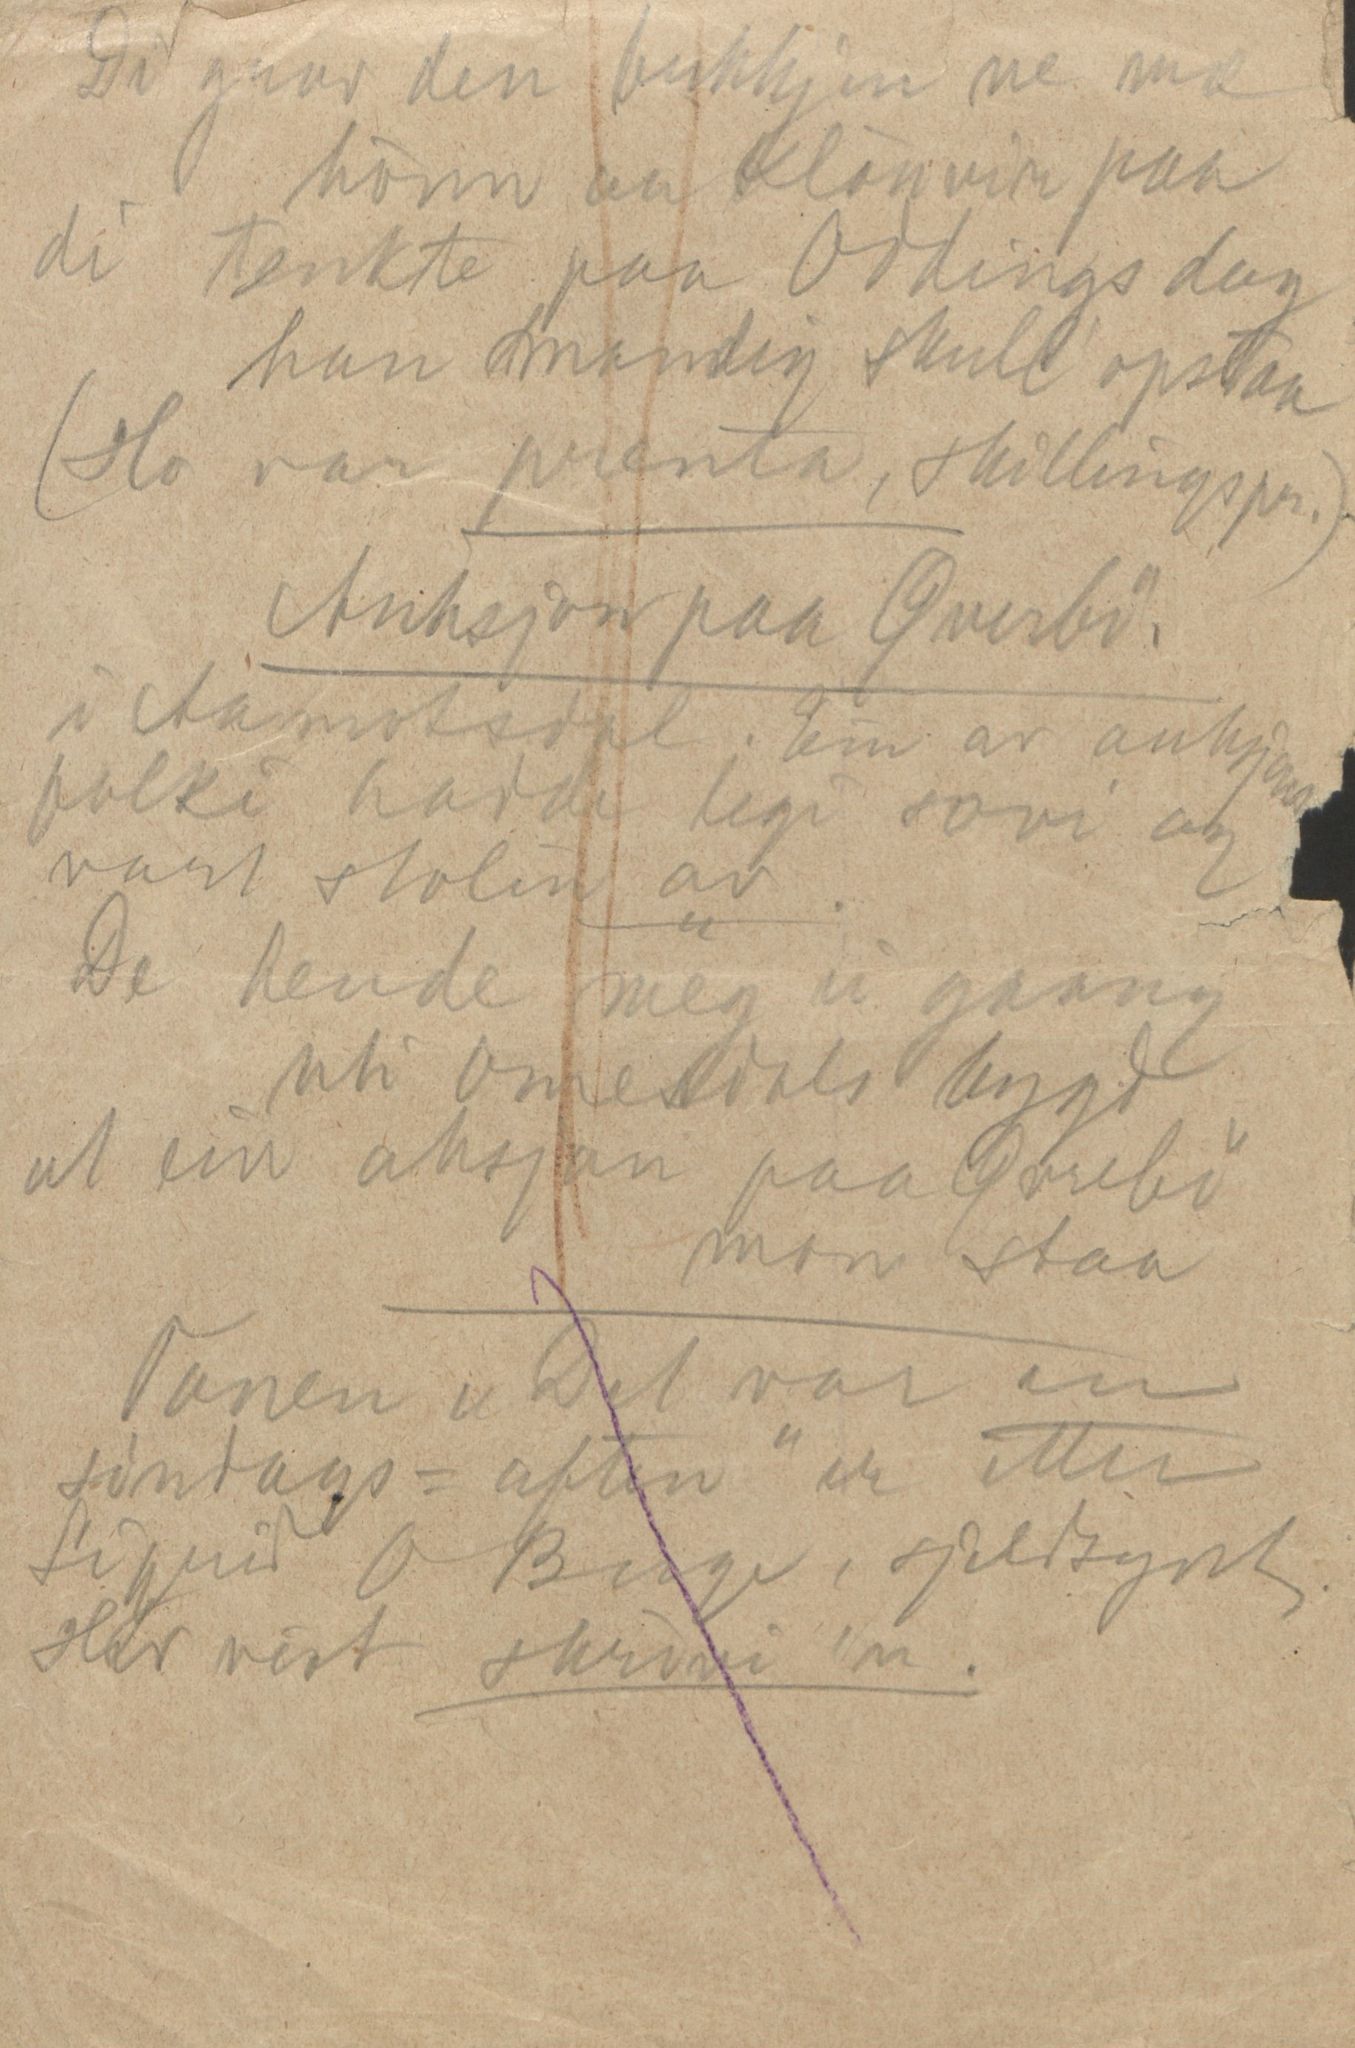 Di grov den bukkjen ne mæ
hònn aa klòuvir paa
di tenkte paa Oddings dag
han mandig skull' opstaa
(Ho var prenta, skillingspr.)
Auksjon paa Øverbö.
i Aamotsdal. Ein av auksjons
folki hadde legi sovi og
vart stolin av.
De hende meg ei gaang
uti Omesdals bygd
at ein aksjon paa Øvrebö"
mon staa
Tonen "Det var en
söndags=aften" er etter
Sigurd O Berge, speldsynt.
Har vist skrivi 'n.